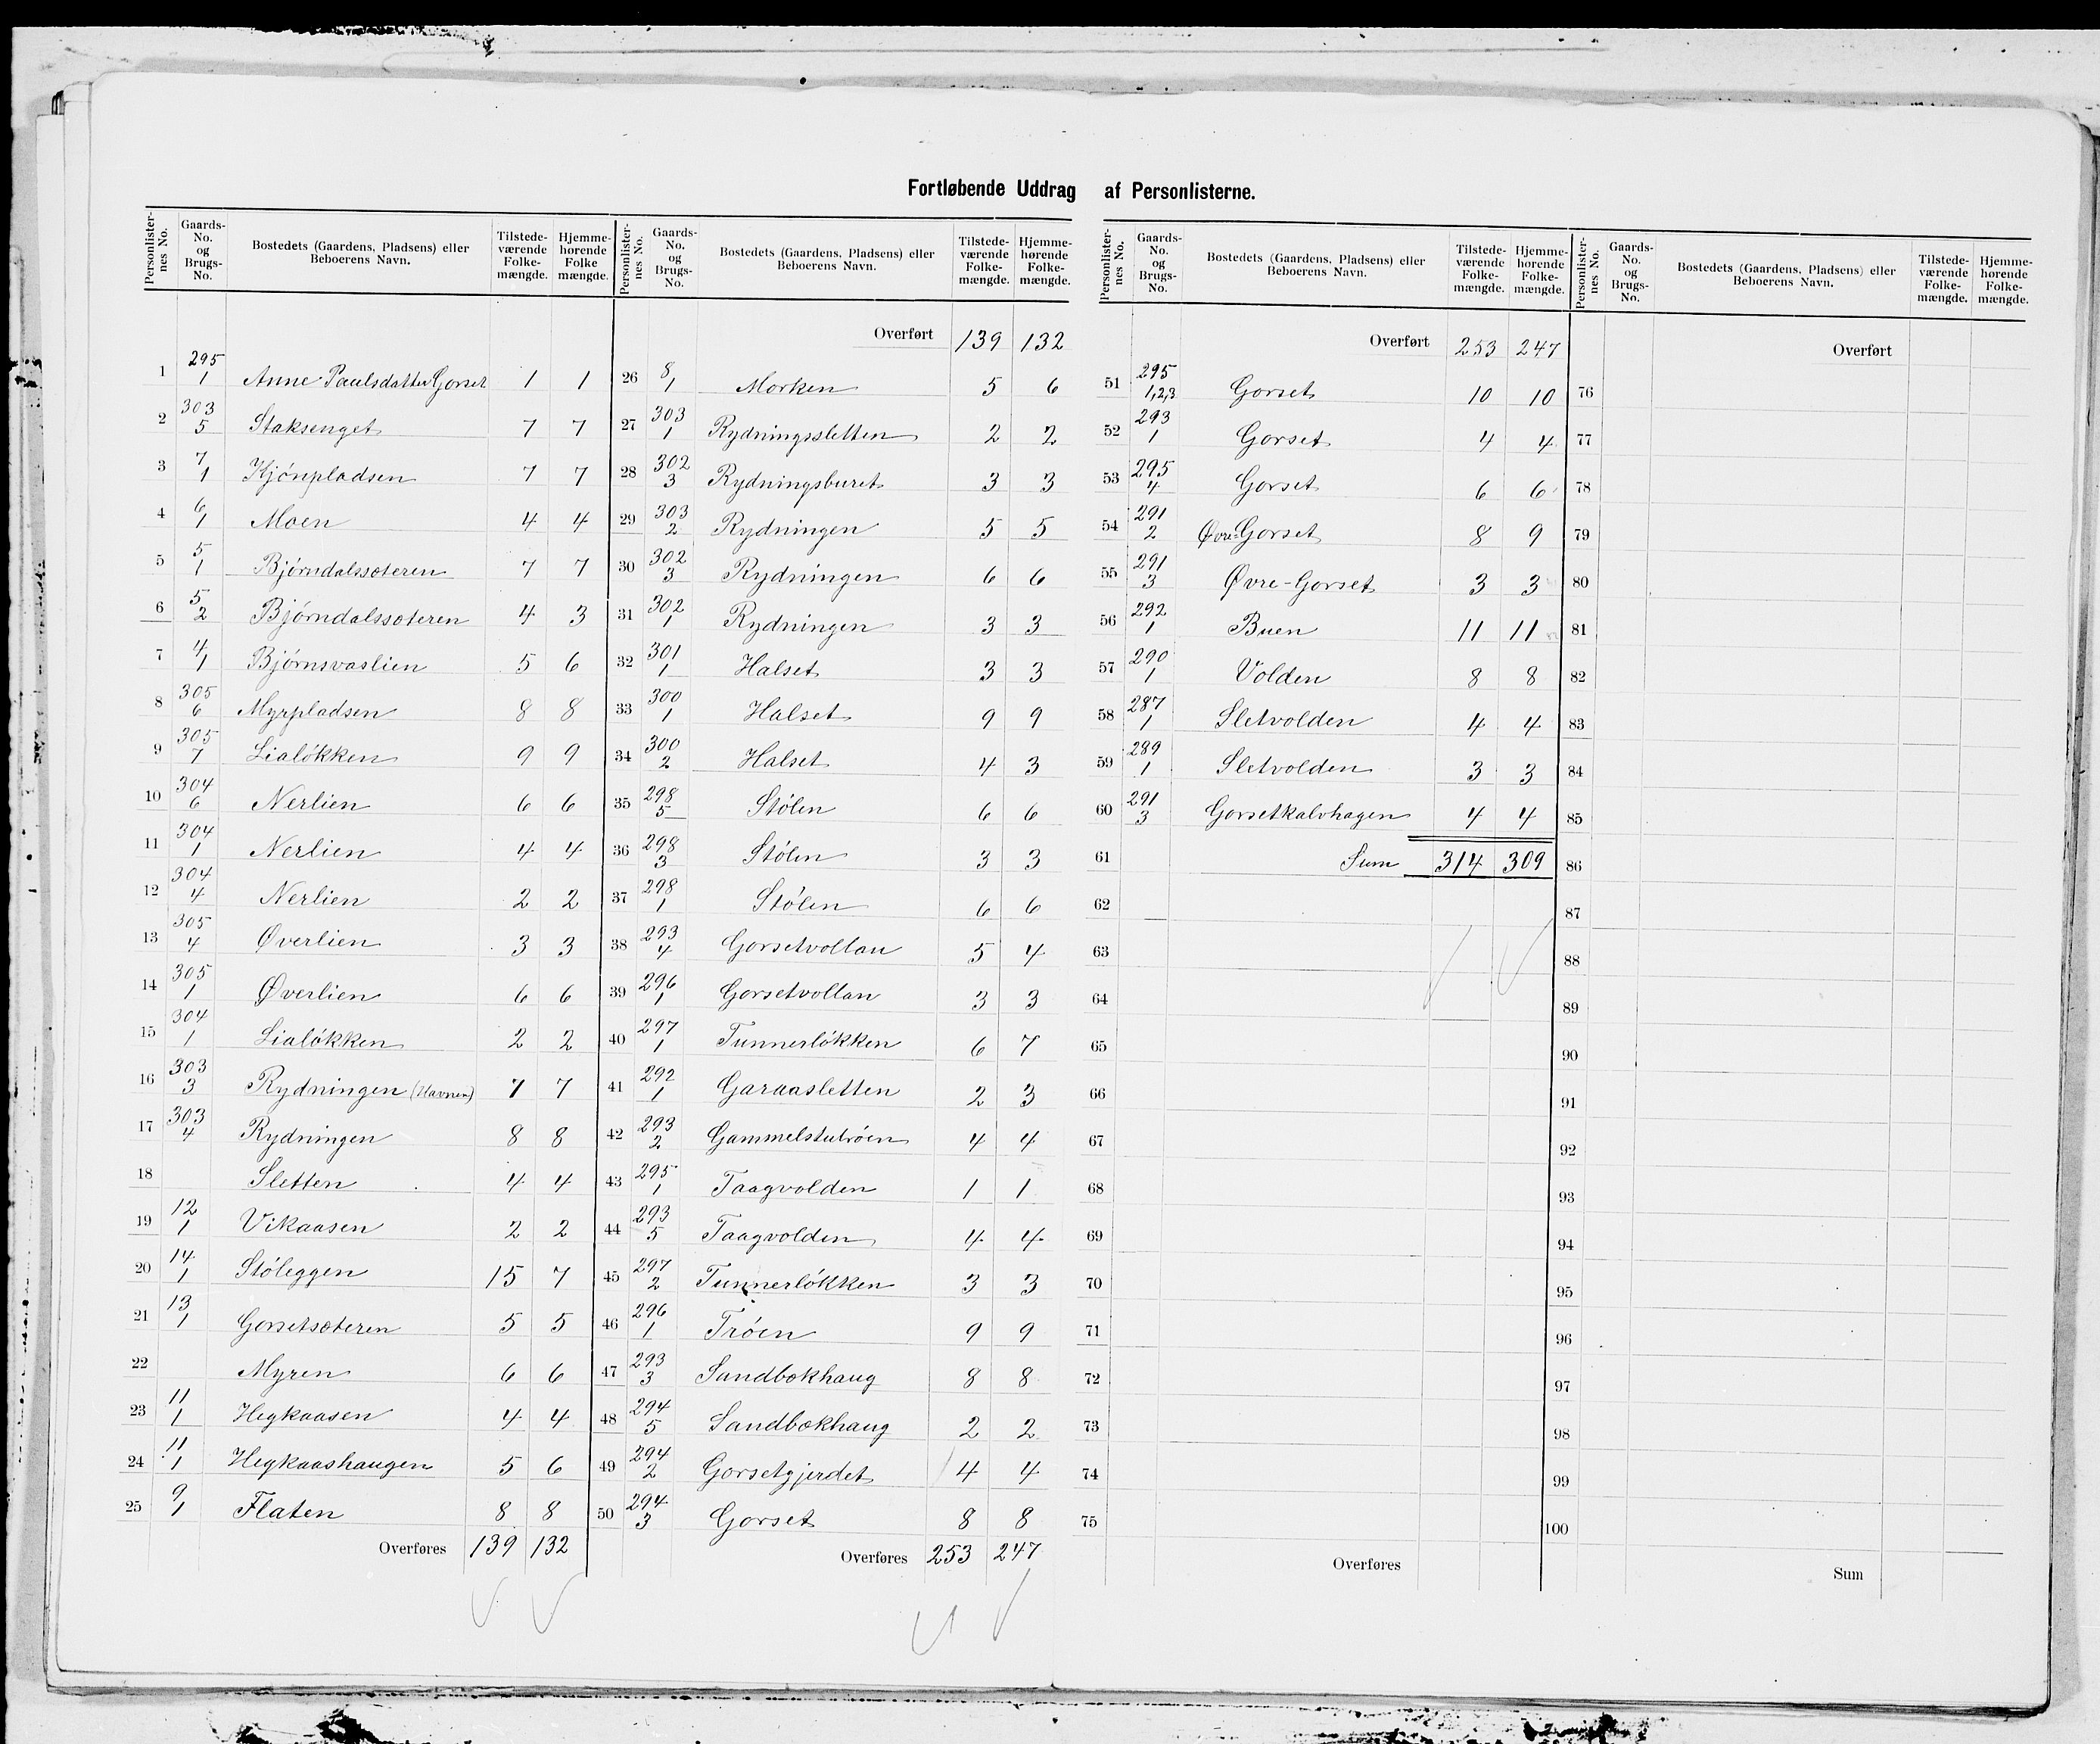 Fortløbende Uddrag af Personlisterne.
Personlister-nes No. Gaards-No. og Brugs-No. Bostedets (Gaardens, Pladsens) eller Beboerens Navn. Tilstede-værende Folke-mængde. Hjemme-hørende Folke mængde.
1 295/1 Anne Paulsdatter Gorset 1 1
2 303/5 Staksenget 7 7
3 7/1 Hjónpladsen 7 7
4 6/1 Moen 4 4
5 5/1 Bjørndalssæteren 7 7
6 5/2 Bjørndalssæteren 4 3
7 4/1 Bjørnsvaslien 5 6
8 305/6 Myrpladsen 8 8
9 305/7 Lialökken 9 9
10 304/6 Nerlien 6 6
11 304/1 Nerlien 4 4
12 304/4 Nerlien 2 2
13 305/4 Øverlien 3 3
14 305/1 Øverlien 6 6
15 304/1 Lialökken 2 2
16 303/3 Rydningen (Havnen) 7 7
17 303/4 Rydningen 8 8
18 Sletten 4 4
19 12/1 Vikaasen 2 2
20 14/1 Støleggen 15 7
21 13/1 Gorsetsæteren 5 5
22 Myren 6 6
23 11/1 Hegkaasen 4 4
24 11/1 Hegkaashaugen 5 6
25 9/1 Flaten 8 8
Overføres 139 132
Personlister-nes No. Gaards-No. og Brugs-No. Bostedets (Gaardens, Pladsens) eller Beboerens Navn. Tilstede-værende Folke-mængde. Hjemme-hørende Folke-mængde.
Overført 139 132
26 8/1 Morken 5 6
27 303/1 Rydningssletten 2 2
28 302/3 Rydningsburet 3 3
29 303/2 Rydningen 5 5
30 302/3 Rydningen 6 6
31 302/1 Rydningen 3 3
32 301/1 Halset 3 3
33 300/1 Halset 9 9
34 300/2 Halset 4 3
35 298/5 Stølen 6 6
36 298/3 Stølen 3 3
37 298/1 Stølen 6 6
38 293/4 Gorsetvollan 5 4
39 296/1 Gorsetvollan 3 3
40 297/1 Tunnerlökken 6 7
41 292/1 Garaasletten 2 3
42 293/2 Gammelstutróen 4 4
43 295/1 Taagvolden 1 1
44 293/5 Taagvolden 4 4
45 297/2 Tunnerlökken 3 3
46 296/1 Tróen 9 9
47 293/3 Sandbækhaug 8 8
48 294/5 Sandbækhaug 2 2
49 294/2 Gorsetgjerdet 4 4
50 294/3 Gorset 8 8
Overføres 253 247
Personlister-nes No. Gaards-No. og Brugs-No. Bostedets (Gaardens, Pladsens) eller Beboerens Navn. Tilstede-værende Folke-mængde. Hjemme-hørende Folke-mængde.
Overført 253 247
51 295/1,2,3 Gorset 10 10
52 293/1 Gorset 4 4
53 295/4 Gorset 6 6
54 291/2 Øvre-Gorset 8 9
55 291/3 Øvre-Gorset 3 3
56 292/1 Buen 11 11
57 290/1 Volden 8 8
58 287/1 Sletvolden 4 4
59 289/1 Sletvolden 3 3
60 291/3 Gorsetkalvhagen 4 4
61 Sum 314 309
62
63
64
65
66
67
68
69
70
71
72
73
74
75
Overføres
Personlister-nes No. Gaards-No. og Brugs-No. Bostedets (Gaardens, Pladsens) eller Beboerens Navn. Tilstede-værende Folke-mængde. Hjemme-hørende Folke-mængde.
Overført
76
77
78
79
80
81
82
83
84
85
86
87
88
89
90
91
92
93
94
95
96
97
98
99
100
Sum